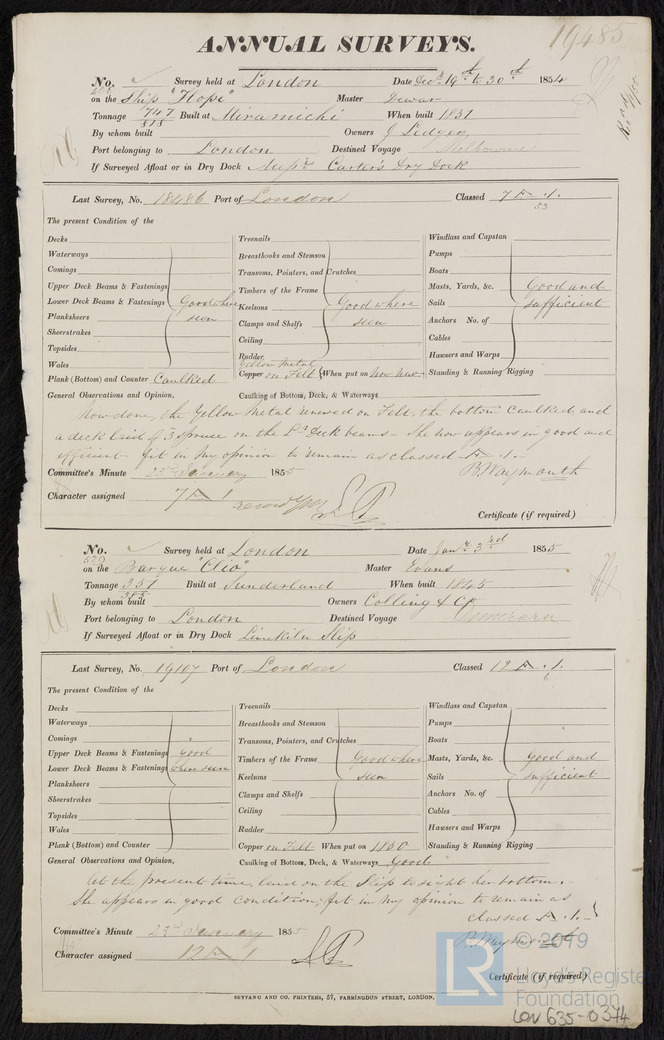 19485
ANNUAL SURVEYS.
No. Survey held at London Date Decr 19th to 30th 1854
on the Ship "Hope" Master Dewar
Tonnage 747 Built at Miramichi When built 1851
By whom built Owners J Ledger
Port belonging to London Destined Voyage Melbourne
If Surveyed Afloat or in Dry Dock Carter's Dry Dock
Last Survey, No. 18486 Port of London Classed 7 A .1.
53
The present Condition of the
Decks Treenails Windlass and Capstan
Waterways Breasthooks and Stemson Pumps
Comings Transoms, Pointers, and Crutches Boats
Upper Deck Beams & Fastenings Timbers of the Frame Masts, Yards, &c. Good and
Lower Deck Beams & Fastenings Good where Keelsons Good where Sails sufficient
Planksheers seen Clamps and Shelfs seen Anchors No. of
Sheerstrakes Ceiling Cables
Topsides Rudder Hawsers and Warps
Wales Yellow Metal
Plank (Bottom) and Counter Caulked Copper on Felt When put on Now New Standing & Running Rigging
General Observations and Opinion, Caulking of Bottom, Deck, & Waterways
Now done, the Yellow Metal renewed on Felt, the bottom caulked and
a deck laid of 3 Spruce on the Lr Deck beams - She now appears in good and
efficient fit in my opinion to remain as classed A .1.-
Committee's Minute 22nd January 1855 B. Waymouth
Character assigned 7 A 1
Certificate (if required)
No. Survey held at London Date Jany 3rd 1855
520
on the Barque "Clio" Master Evans
Tonnage 351 Built at Sunderland When built 1845
By whom built Owners Colling & Co
Port belonging to London Destined Voyage Demerara
If Surveyed Afloat or in Dry Dock Limekiln Slip
Last Survey, No. 19107 Port of London Classed 12 A .1.
6
The present Condition of the
Decks Treenails Windlass and Capstan
Waterways Breasthooks and Stemson Pumps
Comings Transoms, Pointers, and Crutches Boats
Upper Deck Beams & Fastenings good Timbers of the Frame Good where Masts, Yards, &c. good and
Lower Deck Beams & Fastenings where seen Keelsons seen Sails sufficient
Planksheers Clamps and Shelfs Anchors No. of
Sheerstrakes Ceiling Cables
Topsides
Wales Rudder Hawsers and Warps
Plank (Bottom) and Counter Copper on Felt When put on 1850 Standing & Running Rigging
General Observations and Opinion, Caulking of Bottom, Deck, & Waterways Good
At the present time, laid on the Slip to sight her bottom.
She appears in good condition, fit in my opinion to remain as
classed A .1.-
Committee's Minute 22nd January 1855 B. Waymouth
Character assigned 12 A 1
Certificate (if required)
SEYFANG AND CO. PRINTERS, 57, FARRINGDON STREET, LONDON.
LR © 2019
Lloyd's Register
Foundation
LON 635-0374